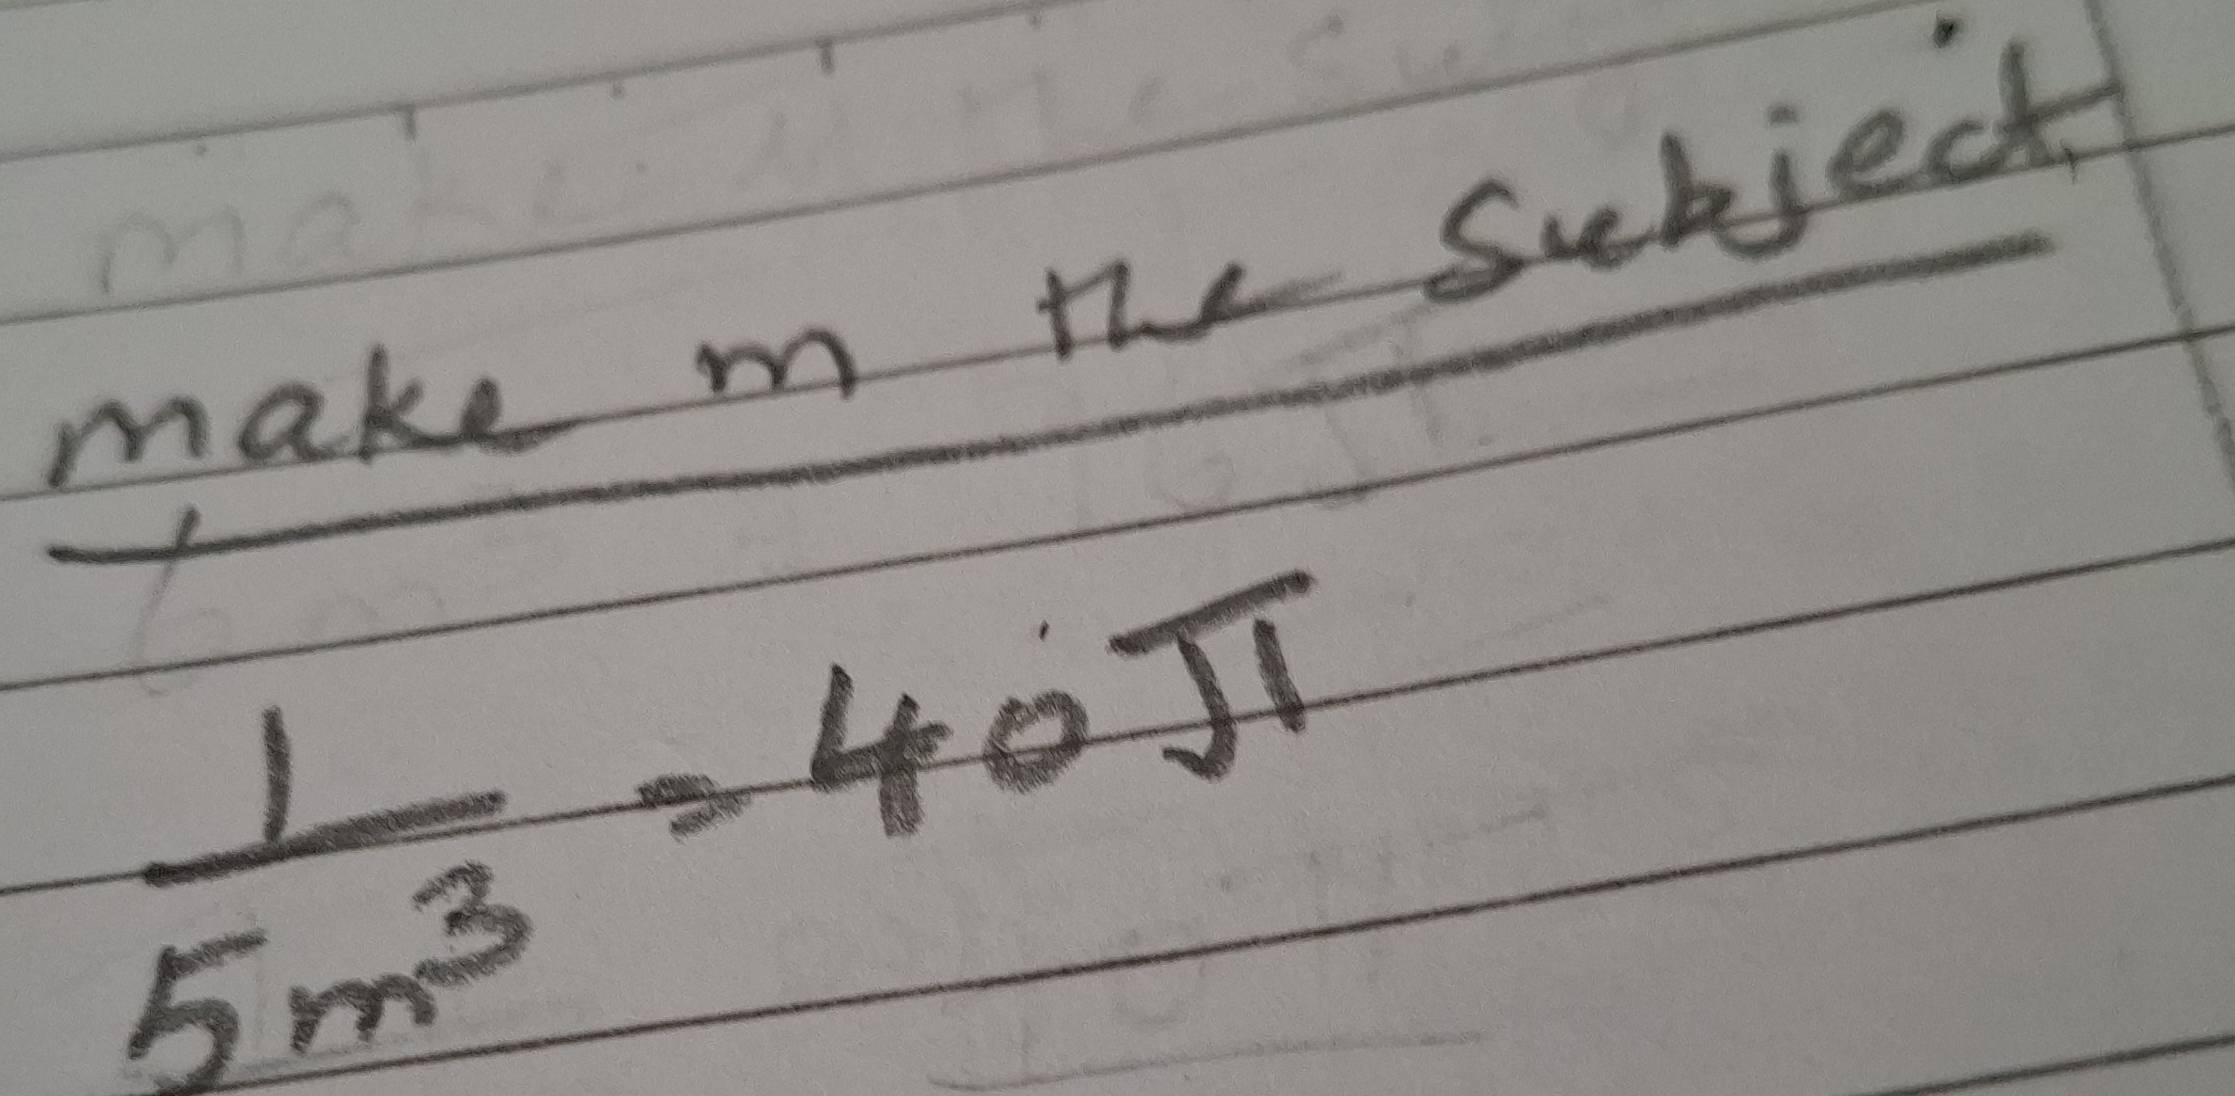 make m the subject
1
5m³ = 40π